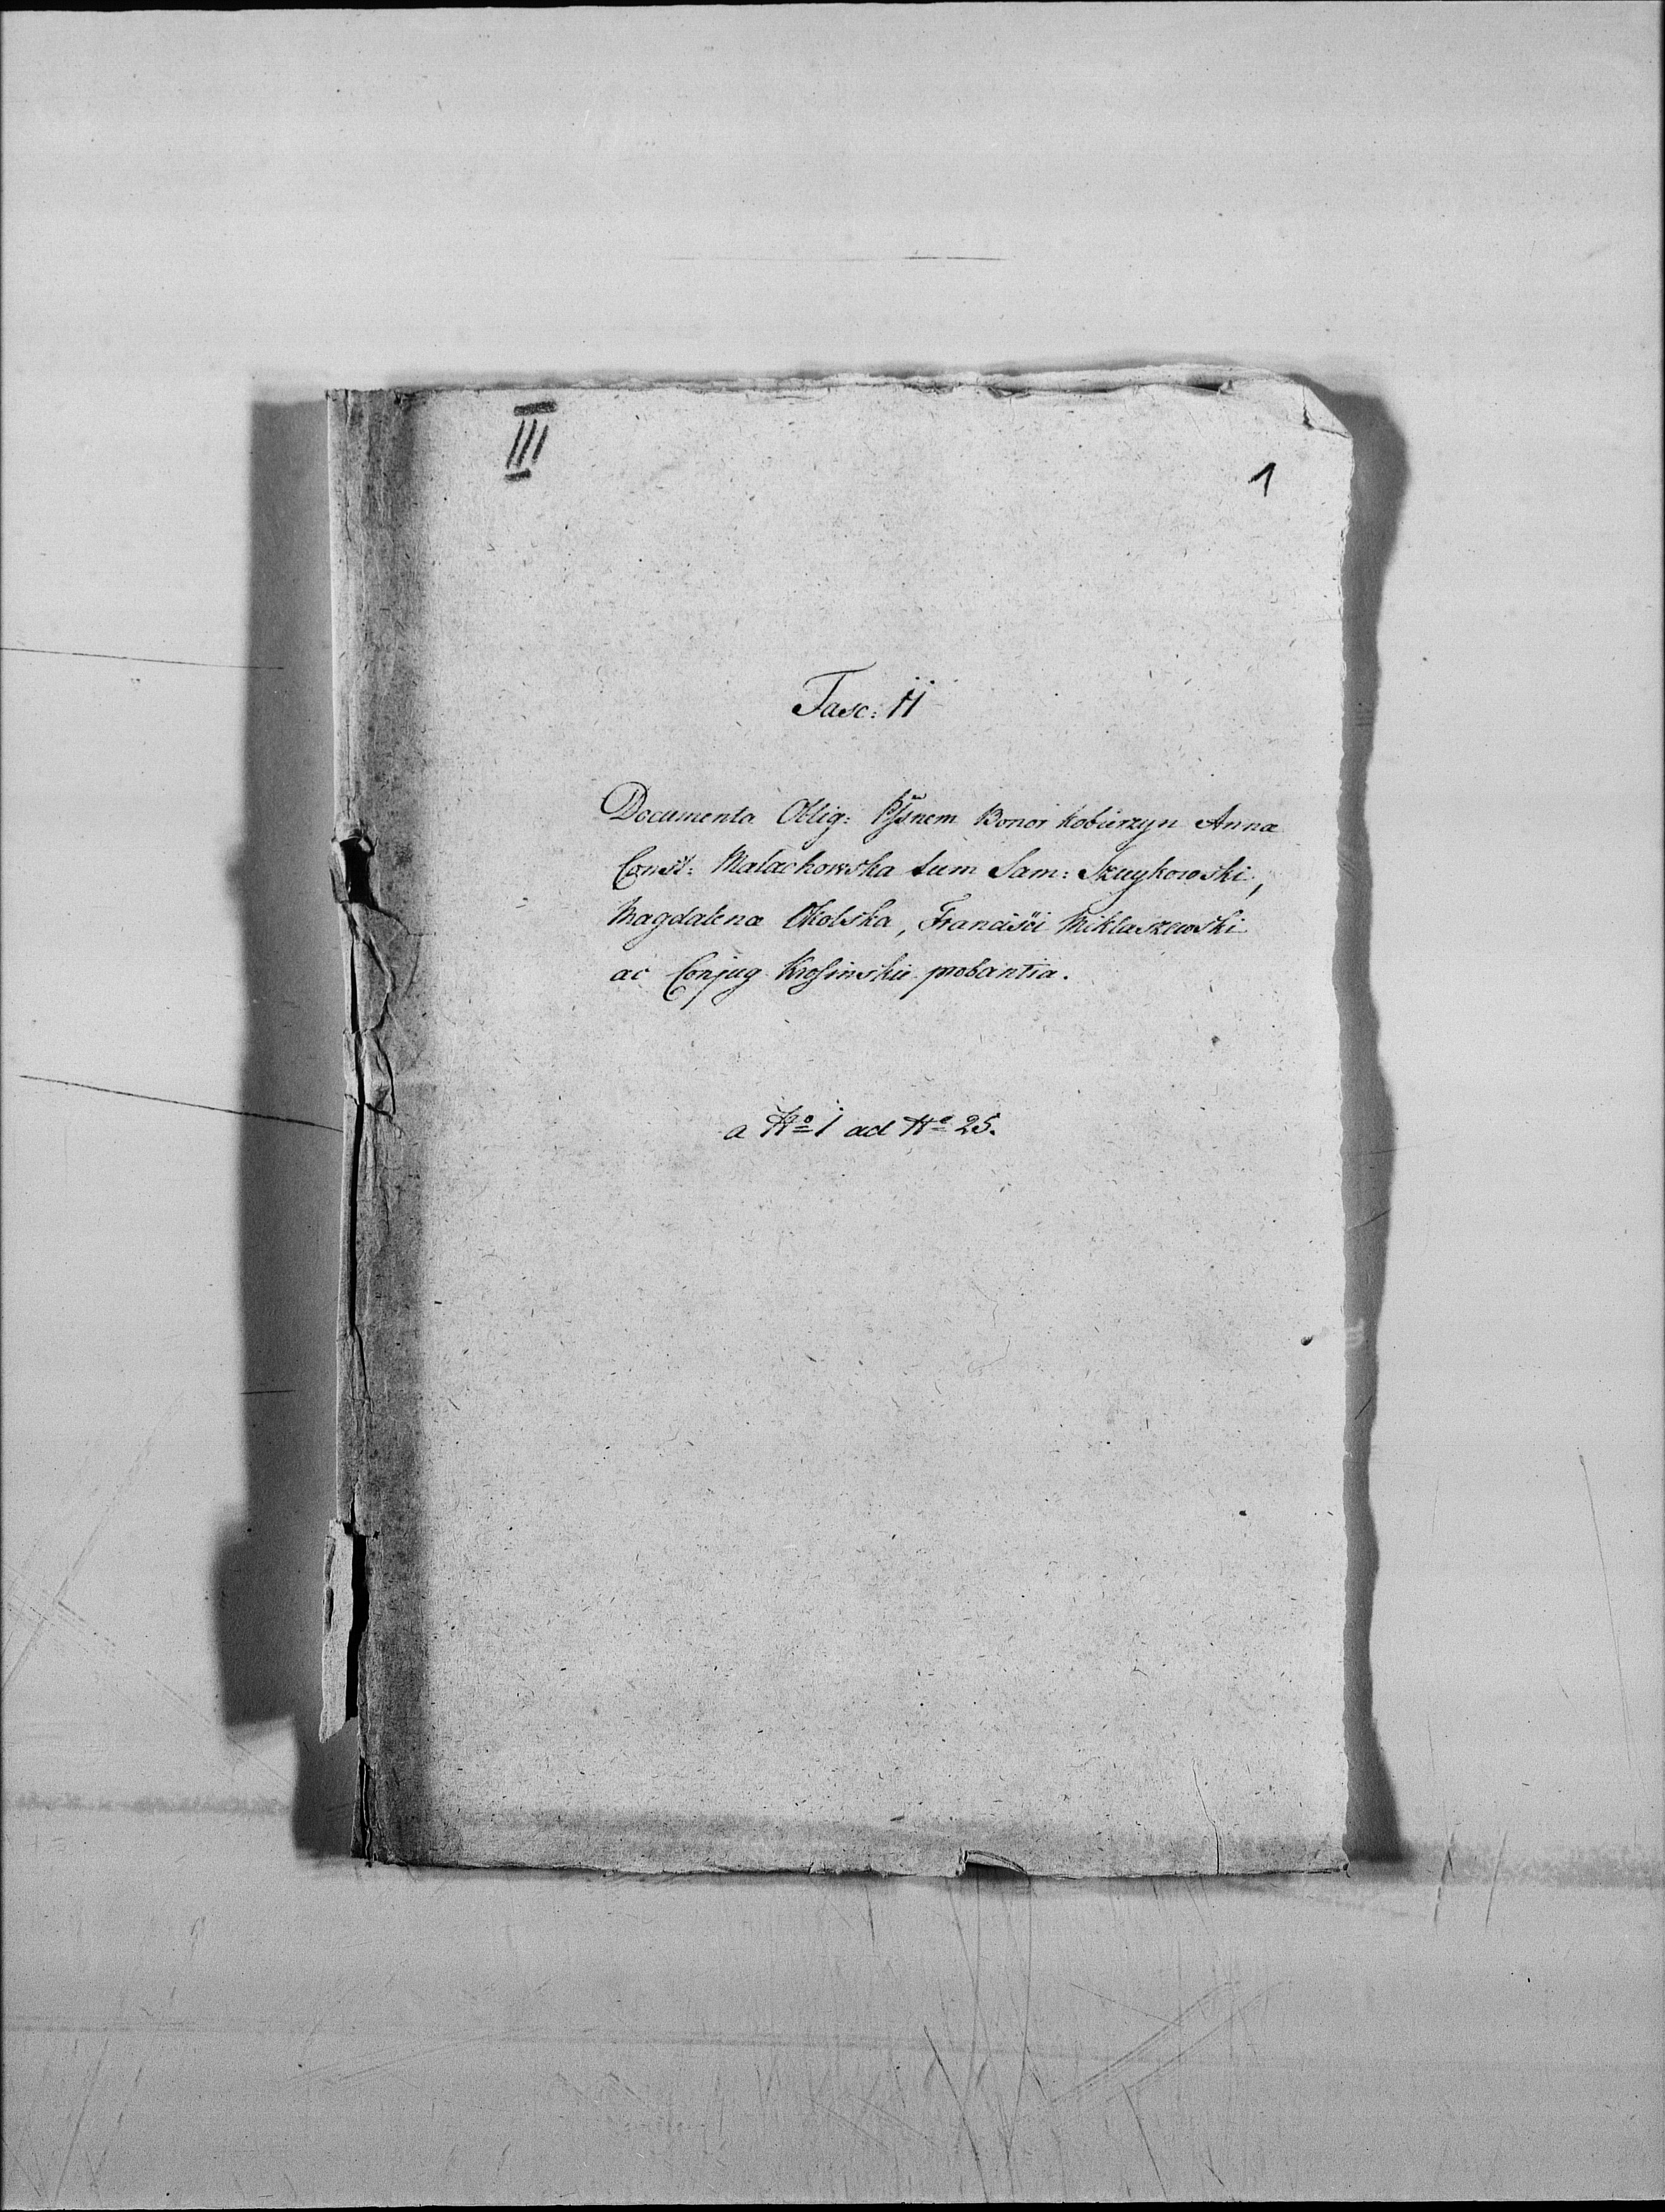 III
1
Fasc: II
Documenta Oblig: Pssnem Bonor Kobierzyn Anna
Const: Malachowska tum Sam: Szuykowski,
Magdalena Okolska, Francisci Miklaszewski
ac Conjug Krosinskie probantia.
a No 1 ad No 25.